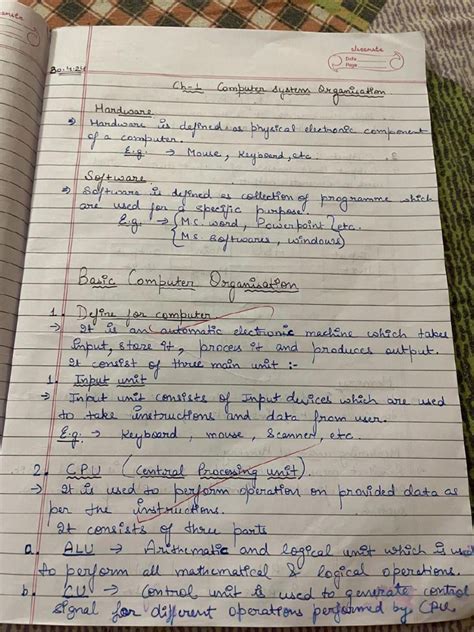 classmate
Date
Page
30.4.24
Ch-1 Computer System Organisation
Hardware
→ Hardware is defined as physical electronic component
of a computer.
E.g. → Mouse, Keyboard, etc.
Software
→ Software is defined as collection of programme which
are used for a specific purpose.
E.g. → {M.S. word, Powerpoint} etc.
{M.S. Softwares, windows}
Basic Computer Organisation
1. Define for computer
→ It is an automatic electronic machine which takes
Input, store it, proces it and produces output.
It consist of three main unit :-
1. Input unit
→ Input unit consists of Input devices which are used
to take instructions and data from user.
E.g. → Keyboard, mouse, Scanner, etc.
2. CPU (Central Processing unit).
→ It is used to perform operation on provided data as
per the instructions.
It consists of three parts
a. ALU → Arithematic and logical unit which is used
to perform all mathematical & logical operations.
b. CU → Control unit is used to generate control
signal for different operations performed by CPU.